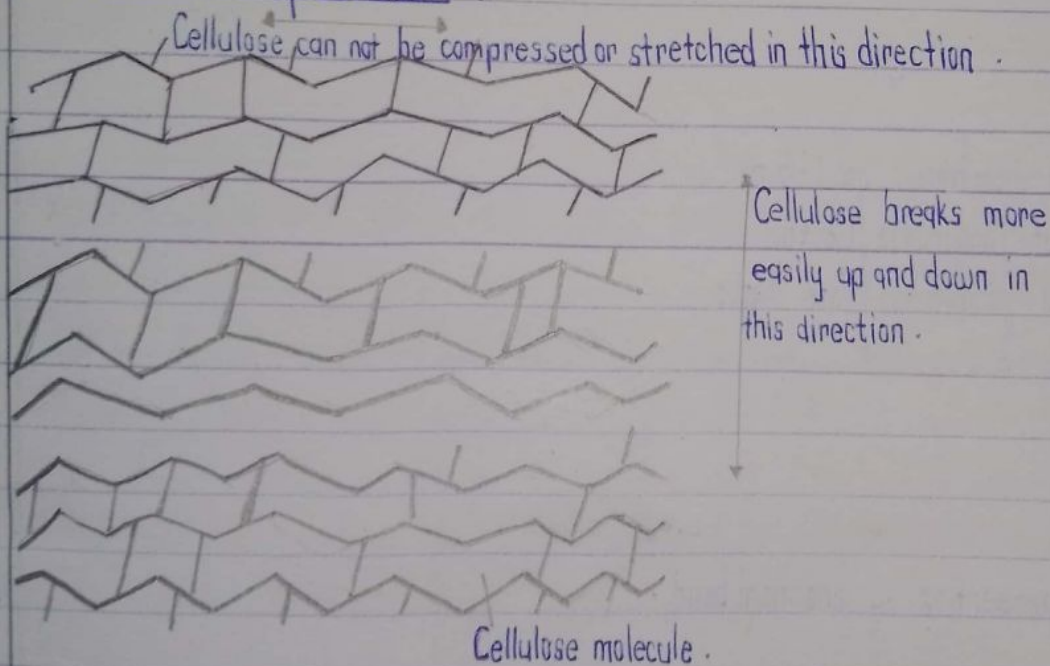 Cellulose can not be compressed or stretched in this direction .
Cellulose breaks more
easily up and down in
this direction .
Cellulose molecule .